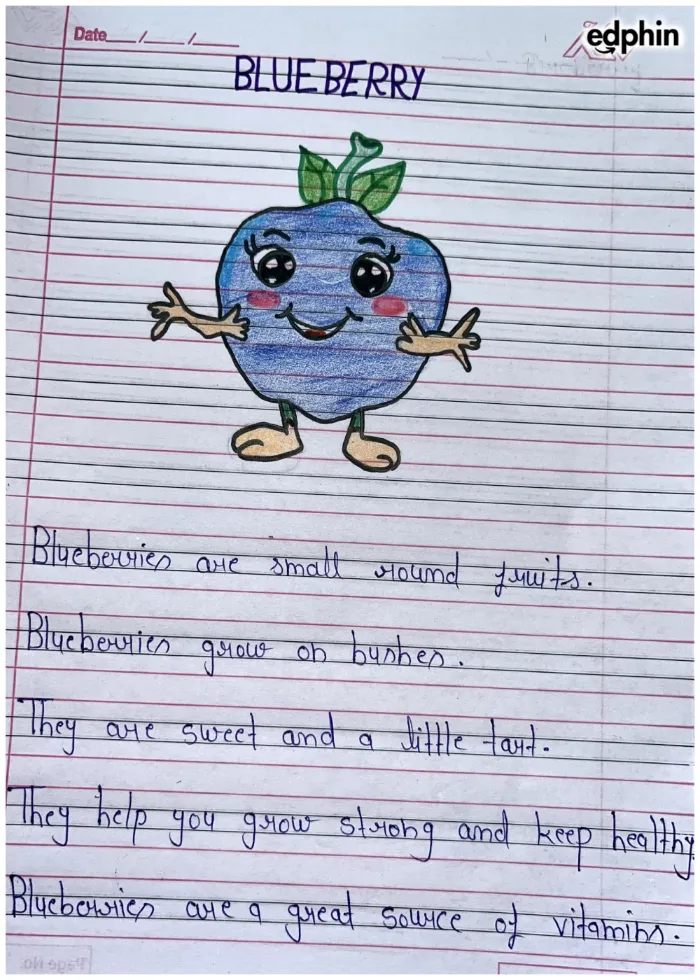 Date __/__/__
edphin
BLUEBERRY
Blueberries are small round fruits.
Blueberries grow on bushes.
They are sweet and a little tart.
They help you grow strong and keep healthy
Blueberries are a great source of vitamins.
Page No